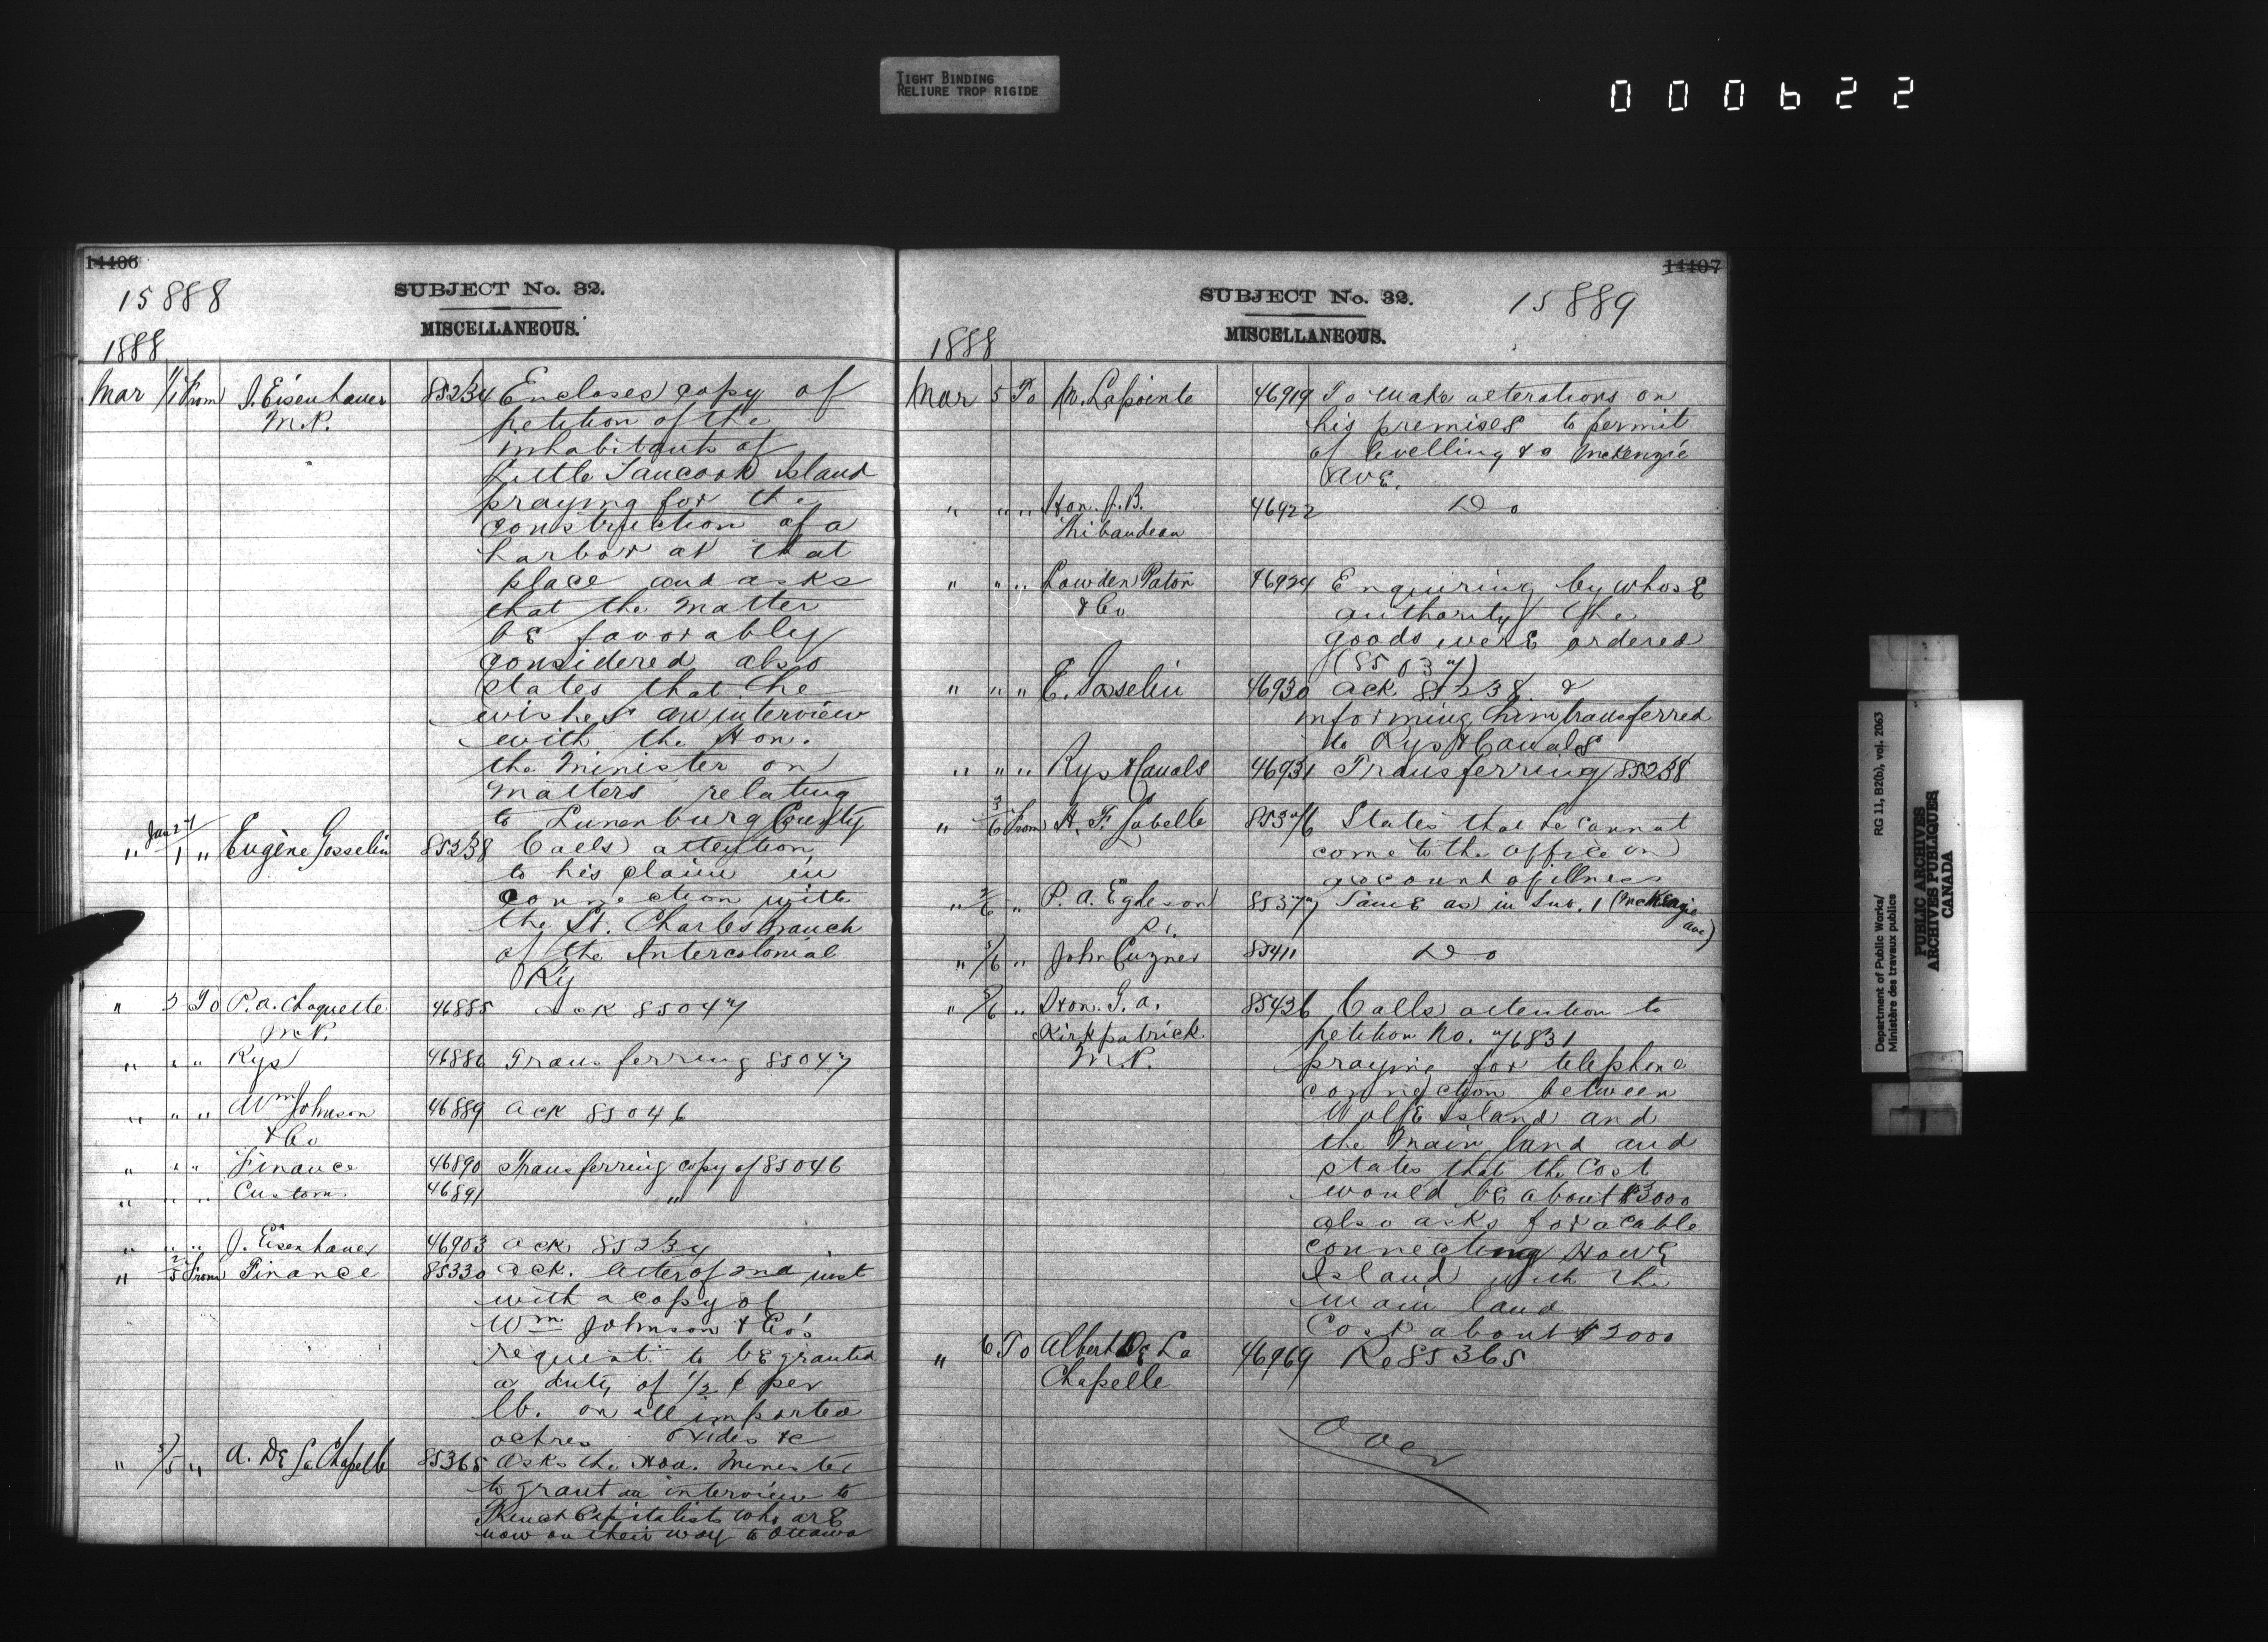 TIGHT BINDING
RELIURE TROP RIGIDE
000622
14406
15888
SUBJECT No. 32.
MISCELLANEOUS.
1888
Mar 1/1 From J. Eisenhauer 85234 Encloses copy of
M.P. petition of the
inhabitants of
Little Tancook Island
praying for the
construction of a
harbor at that
place and asks
that the matter
be favorably
considered also
states that he
wishes an interview
with the Hon.
the Minister on
matters relating
to Lunenburg County
" Jan 27/1 " Eugène Gosselin 85238 Calls attention
to his claim in
connection with
the St. Charles branch
of the Intercolonial
Ry
" 2 To P. A. Choquette 46885 Ack 85047
M.P.
" " " Rys 46886 Transferring 85047
" " " Wm Johnson 46889 Ack 85046
& Co
" " " Finance 46890 Transferring copy of 85046
" " " Customs 46891 "
" " " J. Eisenhauer 46903 Ack 85234
" 2/5 From Finance 85330 Ack. letter of 2nd inst
with a copy of
Wm Johnson & Co's
request to be granted
a duty of 1/2 ¢ per
lb. on all imported
ochres oxides &c
" 5/5 " A. De La Chapelle 85365 Asks the Hon. Minister
to grant an interview to
French Capitalists who are
now on their way to Ottawa
14407
SUBJECT No. 32.
15889
MISCELLANEOUS.
1888
Mar 5 To M. Lapointe 46919 To make alterations on
his premises to permit
of levelling &c McKenzie
Ave.
" " " Hon. J. B. 46922 Do
Thibaudeau
" " " Lowden Paton 46924 Enquiring by whose
& Co authority the
goods were ordered
(85037)
" " " E. Gosselin 46930 Ack 85238 &
informing him transferred
to Rys & Canals
" " " Rys & Canals 46931 Transferring 85238
" 3/6 From H. F. Labelle 85376 States that he cannot
come to the office on
account of illness
" 2/6 " P. A. Egleson 85377 Same as in Sub. 1 (McKenzie
Ave)
" 5/6 " John Cuzner 85411 Do
" 5/6 " Hon. G. A. 85426 Calls attention to
Kirkpatrick petition No. 76831
M.P. praying for telephone
connection between
Wolfe Island and
the main land and
states that the cost
would be about $3000
also asks for a cable
connecting Howe
Island with the
main land
Cost about $2000
" 6 To Albert De La 46969 Re 85365
Chapelle
Over
Department of Public Works/
Ministère des travaux publics
RG 11, B2(b), vol. 2063
PUBLIC ARCHIVES
ARCHIVES PUBLIQUES
CANADA